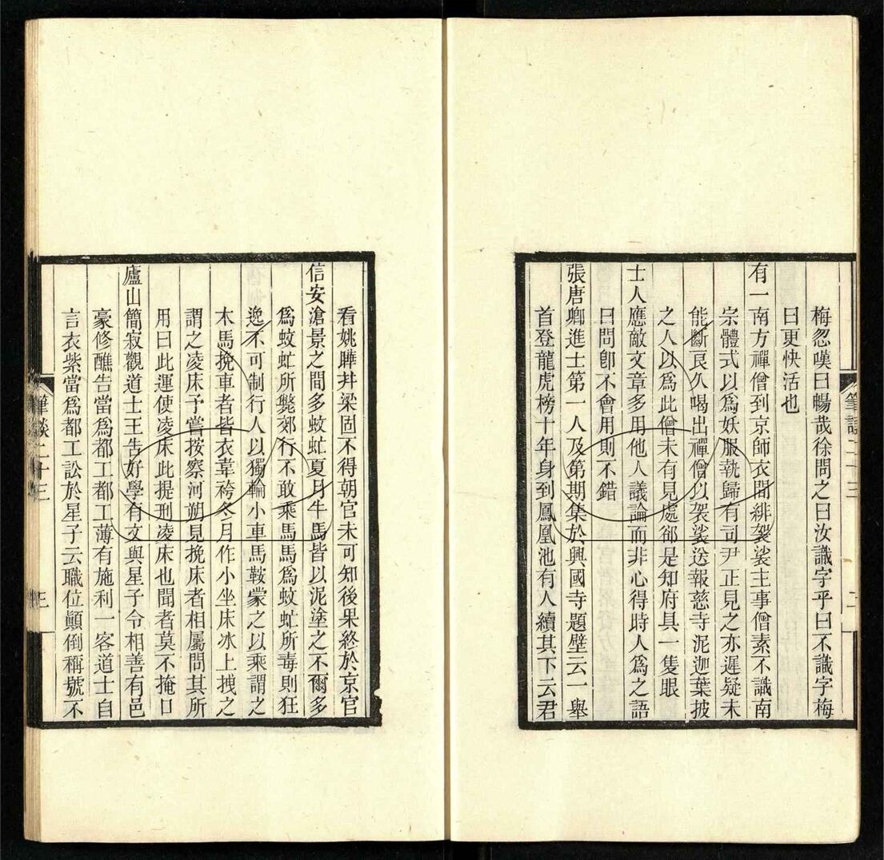 梅忽嘆曰暢哉徐問之曰汝識字乎曰不識字梅
曰更快活也
有一南方禪僧到京師衣間緋袈裟主事僧素不識南
宗體式以爲妖服執歸有司尹正見之亦遲疑未
能斷良久喝出禪僧以袈裟送報慈寺泥迦葉披
之人以爲此僧未有見處郤是知府具一隻眼
士人應敵文章多用他人議論而非心得時人爲之語
曰問卽不會用則不錯
張唐卿進士第一人及第期集於興國寺題壁云一舉
首登龍虎榜十年身到鳳凰池有人續其下云君
看姚曄并梁固不得朝官未可知後果終於京官
信安滄景之間多蚊虻夏月牛馬皆以泥塗之不爾多
爲蚊虻所斃郊行不敢乘馬馬爲蚊虻所毒則狂
逸不可制行人以獨輪小車馬鞍蒙之以乘謂之
木馬挽車者皆衣韋袴冬月作小坐床冰上拽之
謂之凌床予嘗按察河朔見挽床者相屬問其所
用曰此運使凌床此提刑凌床也聞者莫不掩口
廬山簡寂觀道士王告好學有文與星子令相善有邑
豪修醮告當爲都工都工薄有施利一客道士自
言衣紫當爲都工訟於星子云職位顚倒稱號不
筆談二十三
三